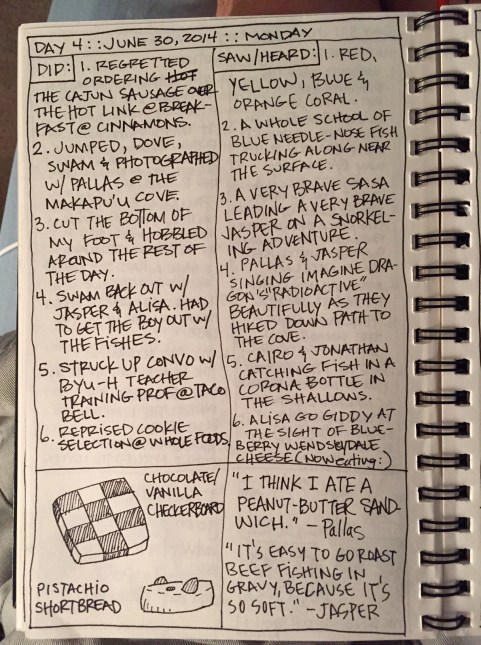 DAY 4::JUNE 30, 2014::MONDAY
DID: 1. REGRETTED
ORDERING HOT
THE CAJUN SAUSAGE OVER
THE HOT LINK @ BREAK-
FAST @ CINNAMONS.
2. JUMPED, DOVE,
SWAM & PHOTOGRAPHED
W/ PALLAS @ THE
MAKAPU'U COVE.
3. CUT THE BOTTOM OF
MY FOOT & HOBBLED
AROUND THE REST OF
THE DAY.
4. SWAM BACK OUT W/
JASPER & ALISA. HAD
TO GET THE BOY OUT W/
THE FISHES.
5. STRUCK UP CONVO W/
BYU-H TEACHER
TRAINING PROF @ TACO
BELL.
6. REPRISED COOKIE
SELECTION @ WHOLE FOODS.
SAW/HEARD: 1. RED,
YELLOW, BLUE &
ORANGE CORAL.
2. A WHOLE SCHOOL OF
BLUE NEEDLE-NOSE FISH
TRUCKING ALONG NEAR
THE SURFACE.
3. A VERY BRAVE SASA
LEADING A VERY BRAVE
JASPER ON A SNORKEL-
ING ADVENTURE.
4. PALLAS & JASPER
SINGING IMAGINE DRA-
GON'S "RADIOACTIVE"
BEAUTIFULLY AS THEY
HIKED DOWN PATH TO
THE COVE.
5. CAIRO & JONATHAN
CATCHING FISH IN A
CORONA BOTTLE IN
THE SHALLOWS.
6. ALISA GO GIDDY AT
THE SIGHT OF BLUE-
BERRY WENDSLYDALE
CHEESE (NOW EATING:)
CHOCOLATE/
VANILLA
CHECKERBOARD
PISTACHIO
SHORTBREAD
"I THINK I ATE A
PEANUT-BUTTER SAND-
WICH." – Pallas
"IT'S EASY TO GO ROAST
BEEF FISHING IN
GRAVY, BECAUSE IT'S
SO SOFT." – JASPER